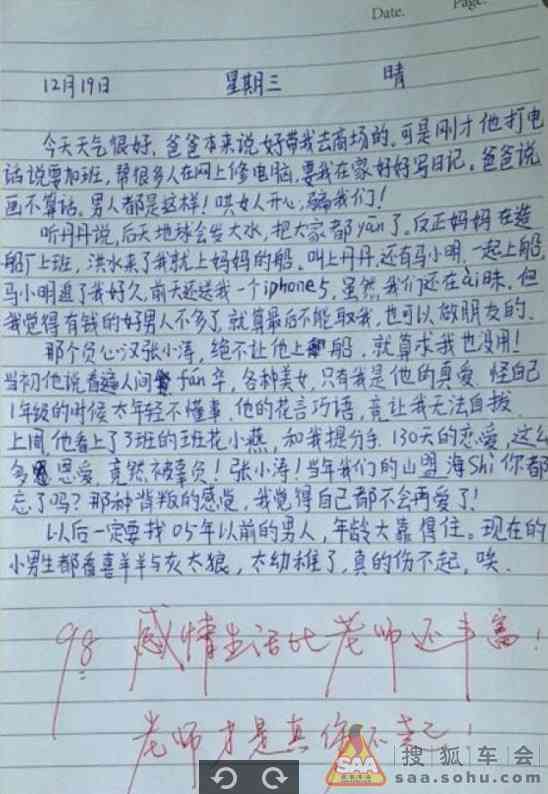 Date. Page.
12月19日 星期三 晴
今天天气很好，爸爸本来说好带我去商场的。可是刚才他打电
话说要加班，帮很多人在网上修电脑，要我在家好好写日记。爸爸说
画不算话。男人都是这样！哄女人开心，骗我们！
听丹丹说，后天地球会发大水，把大家都yān了。反正妈妈在造
船厂上班，洪水来了我就上妈妈的船。叫上丹丹，还有马小明，一起上船。
马小明追了我好久，前天还送我一个iphone5，虽然我们还在ài昧。但
我觉得有钱的好男人不多了，就算最后不能取我，也可以做朋友的。
那个负心汉张小涛，绝不让他上船，就算求我也没用！
当初他说看遍人间fán华，各种美女，只有我是他的真爱。怪自己
1年级的时候太年轻不懂事，他的花言巧语，竟让我无法自拔。
上周，他看上了3班的班花小燕，和我提分手。130天的恋爱，这么
多恩爱，竟然被辜负！张小涛！当年我们的山盟海Shi你都
忘了吗？那种背叛的感觉，我觉得自己都不会再爱了！
以后一定要找05年以前的男人，年龄大靠得住。现在的
小男生都看喜羊羊与灰太狼，太幼稚了，真的伤不起，唉。
98 感情生活比老师还丰富！
老师才是真伤不起！
SAA
搜狐车会
saa.sohu.com